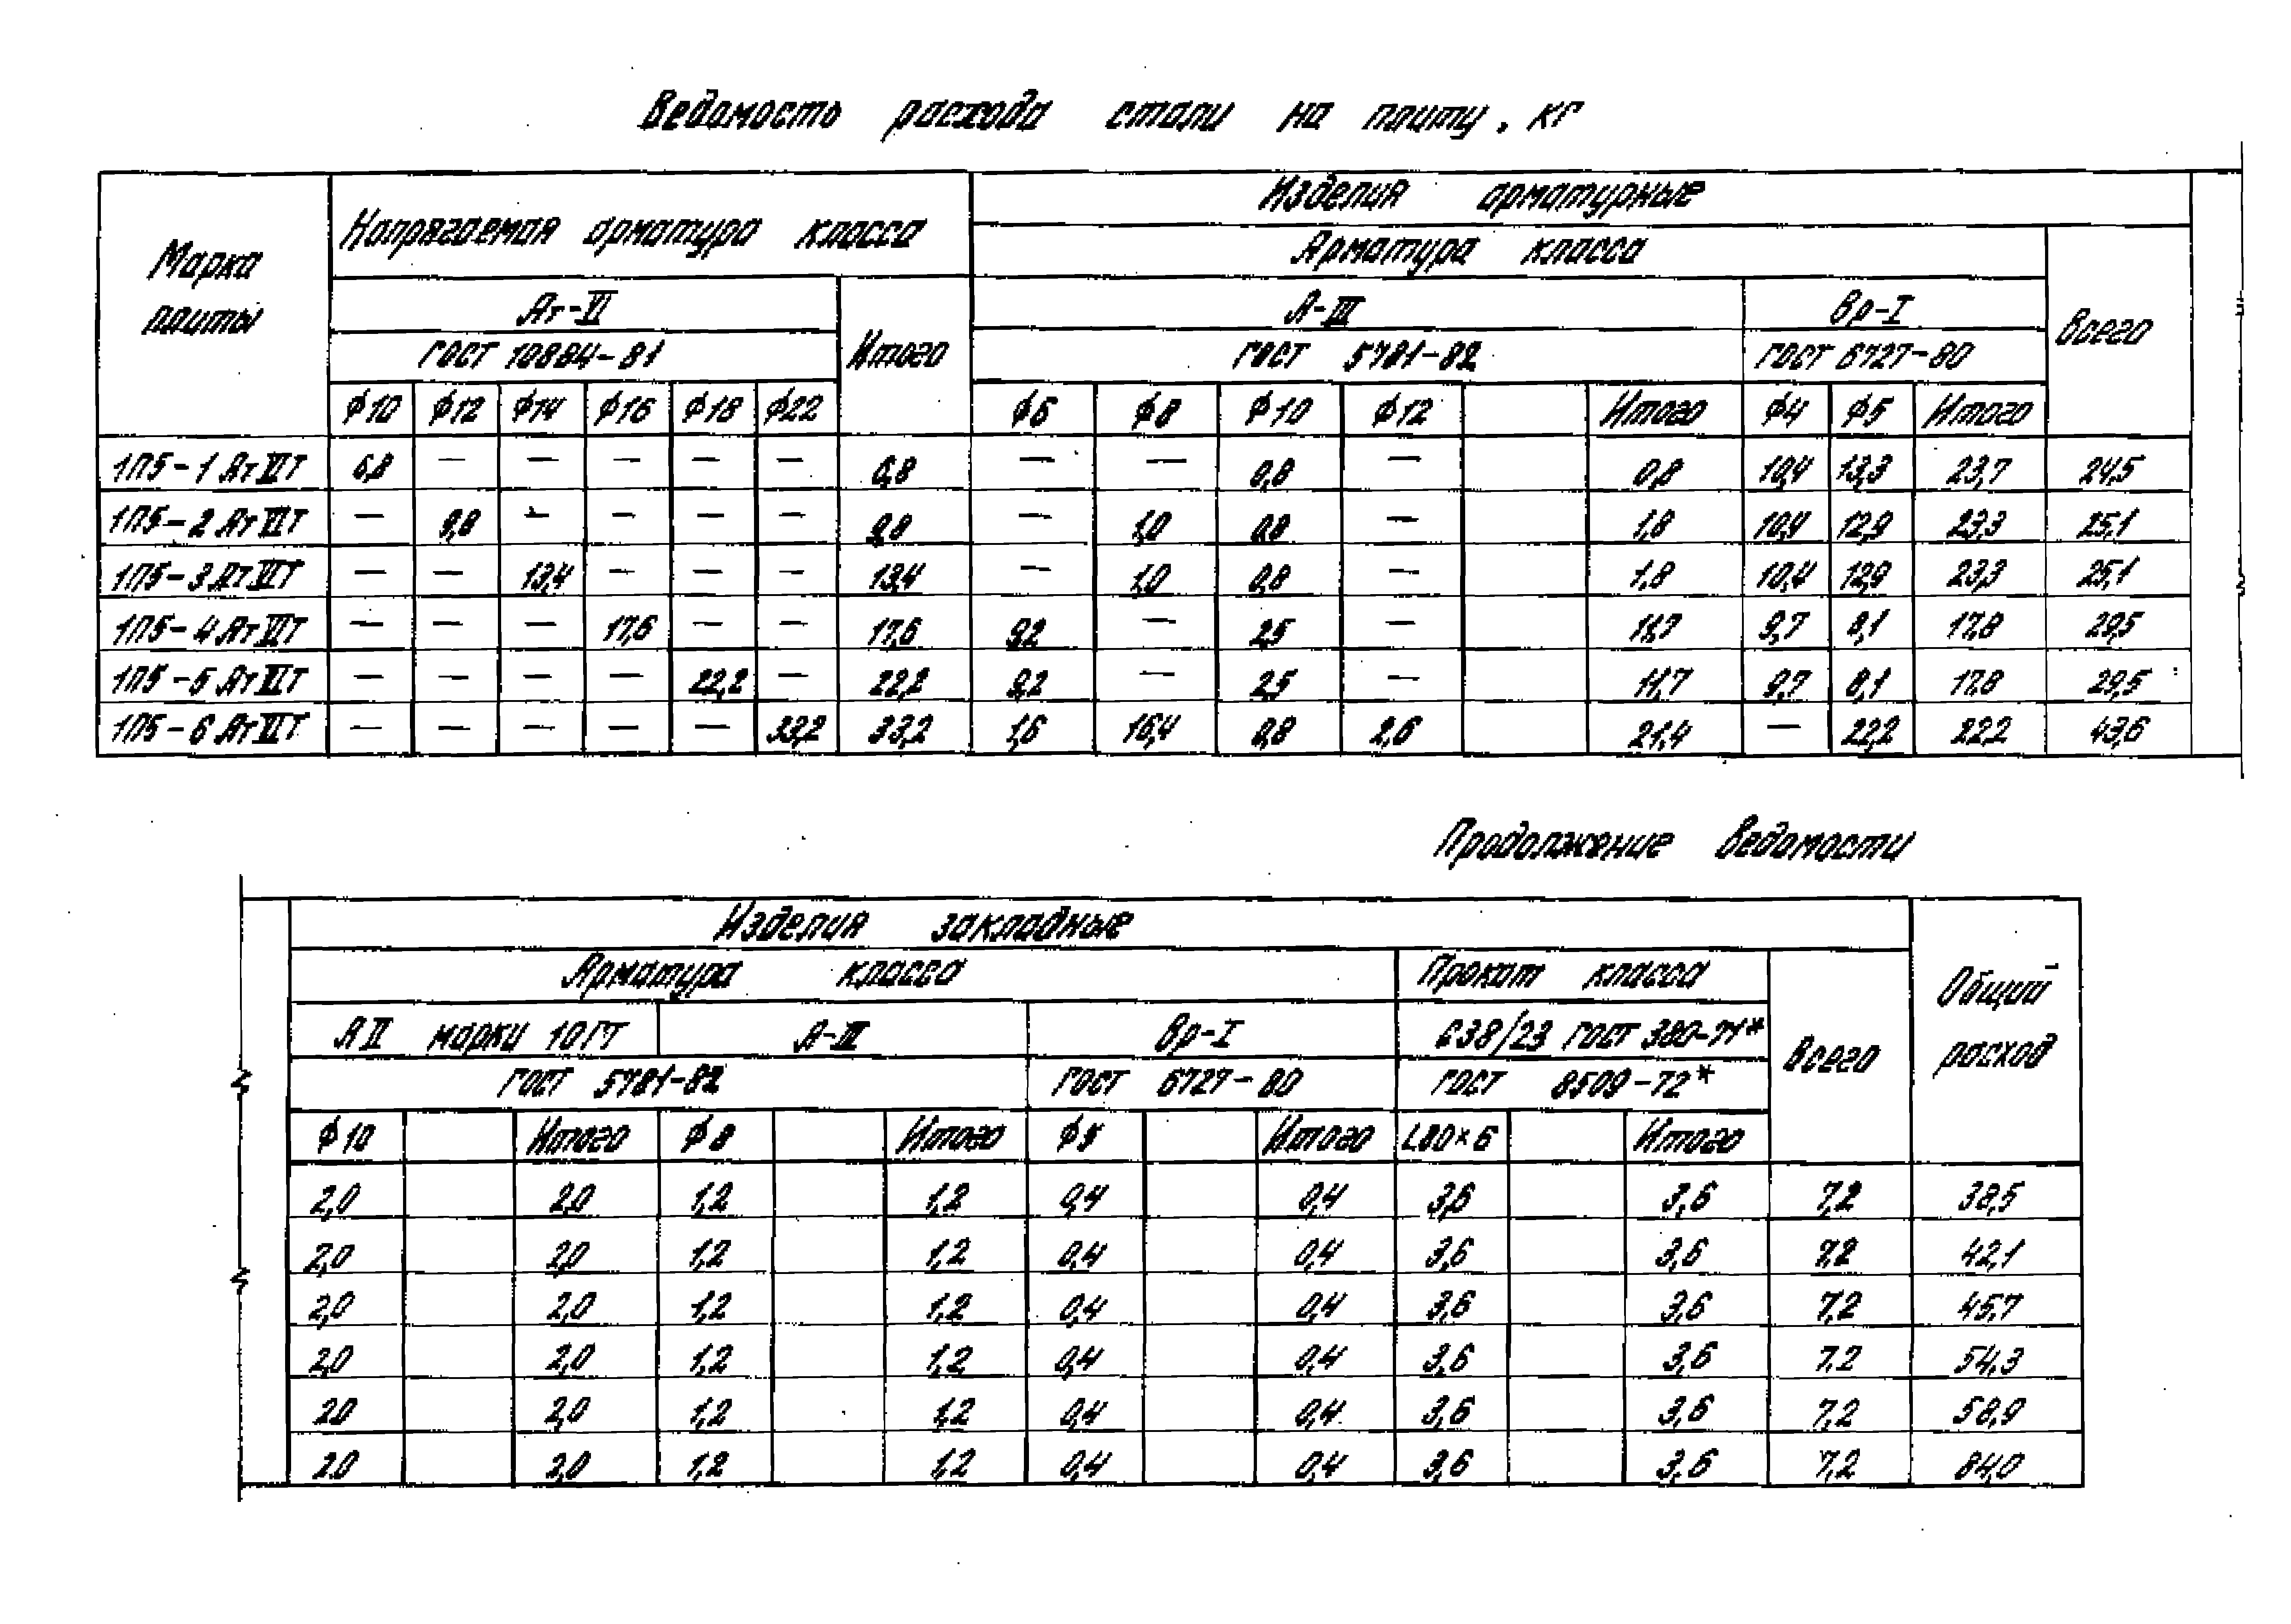 Ведомость расхода стали на плиту, кг
Марка плиты
Напрягаемая арматура класса
Изделия арматурные
Арматура класса
Ат-VI
Итого
А-III
Вр-I
Всего
ГОСТ 10884-81
ГОСТ 5781-82
ГОСТ 6727-80
ϕ10 ϕ12 ϕ14 ϕ16 ϕ18 ϕ22 ϕ6 ϕ8 ϕ10 ϕ12 Итого ϕ4 ϕ5 Итого
1П5-1 АтVIТ 6,8 — — — — — 6,8 — — 0,8 — 0,8 10,4 13,3 23,7 24,5
1П5-2 АтVIТ — 9,8 — — — — 9,8 — 1,0 0,8 — 1,8 10,4 12,9 23,3 25,1
1П5-3 АтVIТ — — 13,4 — — — 13,4 — 1,0 0,8 — 1,8 10,4 12,9 23,3 25,1
1П5-4 АтVIТ — — — 17,6 — — 17,6 9,2 — 2,5 — 11,7 9,7 8,1 17,8 29,5
1П5-5 АтVIТ — — — — 22,2 — 22,2 9,2 — 2,5 — 11,7 9,7 8,1 17,8 29,5
1П5-6 АтVIТ — — — — — 33,2 33,2 1,6 16,4 0,8 2,6 21,4 — 22,2 22,2 43,6
Продолжение ведомости
Изделия закладные
Общий расход
Арматура класса
Прокат класса
Всего
АII марки 10ГТ
А-III
Вр-I
С38/23 ГОСТ 380-71*
ГОСТ 5781-82
ГОСТ 6727-80
ГОСТ 8509-72*
ϕ10 Итого ϕ8 Итого ϕ5 Итого L80×6 Итого
2,0 2,0 1,2 1,2 0,4 0,4 3,6 3,6 7,2 38,5
2,0 2,0 1,2 1,2 0,4 0,4 3,6 3,6 7,2 42,1
2,0 2,0 1,2 1,2 0,4 0,4 3,6 3,6 7,2 45,7
2,0 2,0 1,2 1,2 0,4 0,4 3,6 3,6 7,2 54,3
2,0 2,0 1,2 1,2 0,4 0,4 3,6 3,6 7,2 58,9
2,0 2,0 1,2 1,2 0,4 0,4 3,6 3,6 7,2 84,0